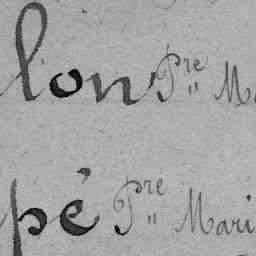 lon Pre Ma
pé Pre Mari